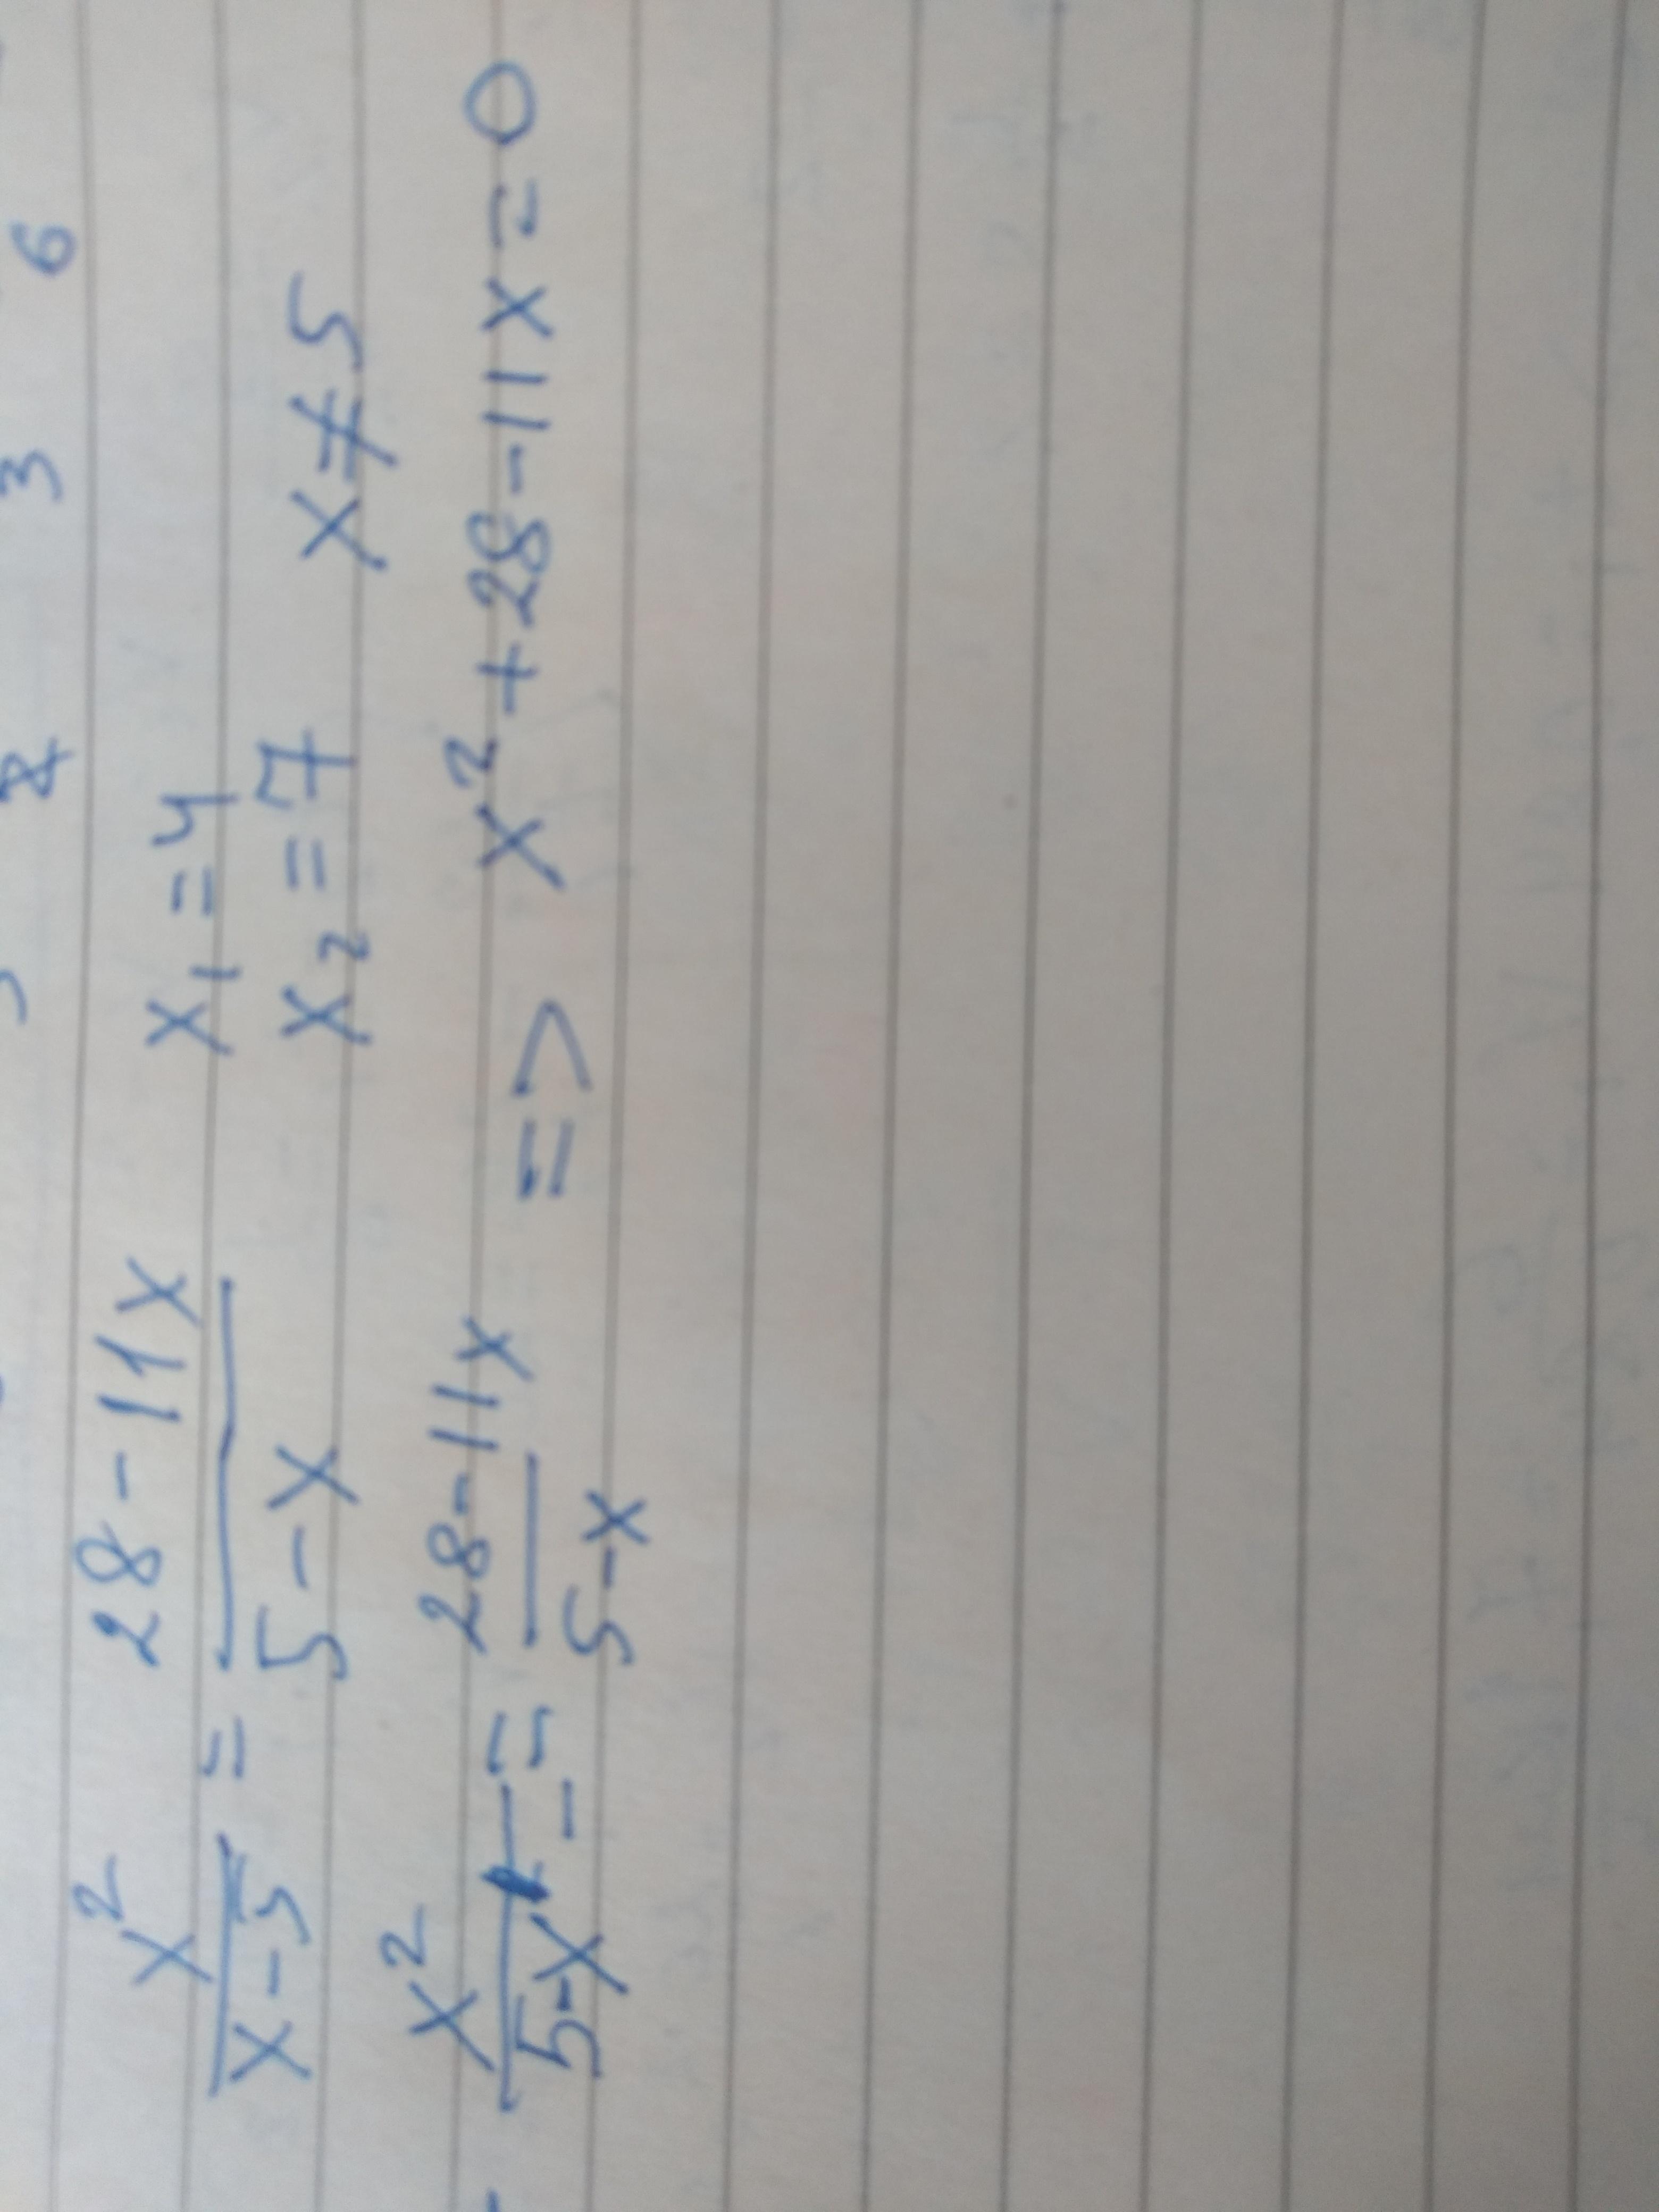 8 3 6
x² / x-5 = 28-11x / 5-x x₁=4
x₂=7 x≠5
- x² / 5-x - = 28-11x / 5-x => x²+28-11x=0